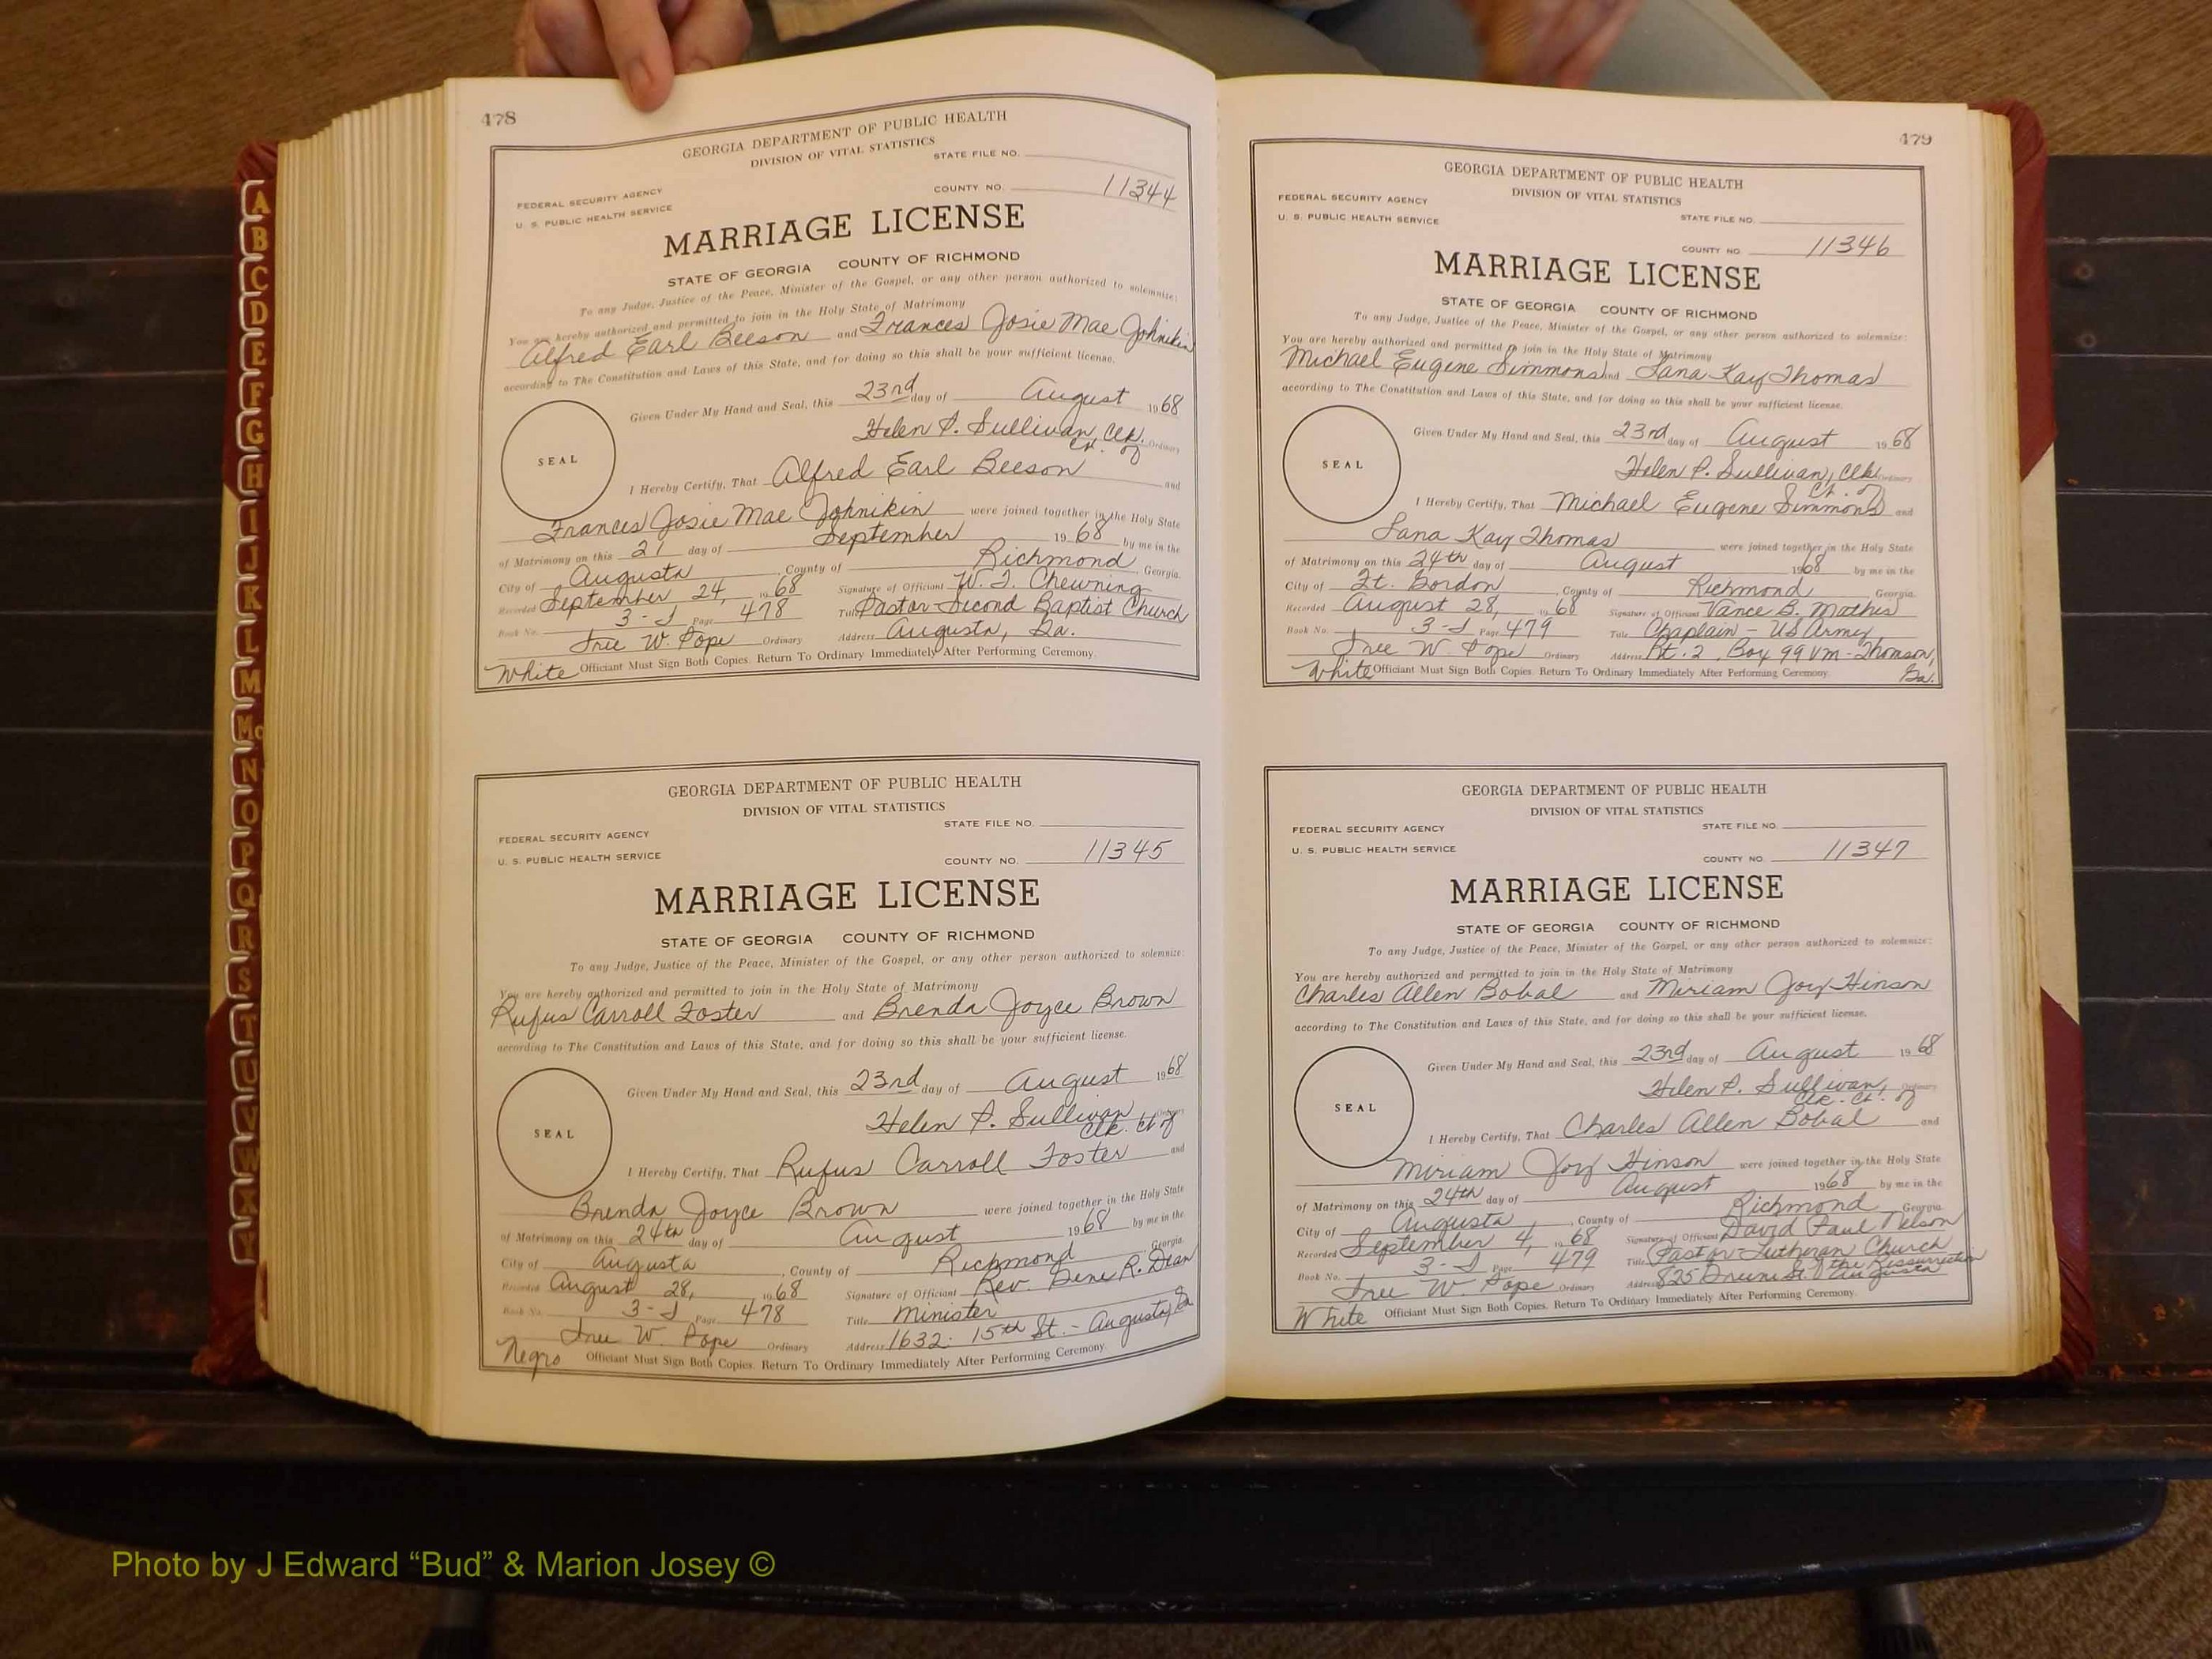 478
GEORGIA DEPARTMENT OF PUBLIC HEALTH
DIVISION OF VITAL STATISTICS
STATE FILE NO.
FEDERAL SECURITY AGENCY
U. S. PUBLIC HEALTH SERVICE
COUNTY NO. 11344
MARRIAGE LICENSE
STATE OF GEORGIA COUNTY OF RICHMOND
To any Judge, Justice of the Peace, Minister of the Gospel, or any other person authorized to solemnize:
You are hereby authorized and permitted to join in the Holy State of Matrimony
Alfred Earl Beeson and Frances Josie Mae Johnikin
according to The Constitution and Laws of this State, and for doing so this shall be your sufficient license.
Given Under My Hand and Seal, this 23rd day of August 1968
Helen P. Sullivan, Clk. Ordinary
Ct. of
SEAL
I Hereby Certify, That Alfred Earl Beeson and
Frances Josie Mae Johnikin were joined together in the Holy State
of Matrimony on this 21 day of September 1968 by me in the
City of Augusta, County of Richmond, Georgia.
Recorded September 24, 1968 Signature of Officiant W. J. Chewning
Book No. 3-J Page 478 Title Pastor-Second Baptist Church
W. Pope Ordinary Address Augusta, Ga.
White Officiant Must Sign Both Copies. Return To Ordinary Immediately After Performing Ceremony.
GEORGIA DEPARTMENT OF PUBLIC HEALTH
DIVISION OF VITAL STATISTICS
STATE FILE NO.
FEDERAL SECURITY AGENCY
U. S. PUBLIC HEALTH SERVICE
COUNTY NO. 11345
MARRIAGE LICENSE
STATE OF GEORGIA COUNTY OF RICHMOND
To any Judge, Justice of the Peace, Minister of the Gospel, or any other person authorized to solemnize:
You are hereby authorized and permitted to join in the Holy State of Matrimony
Rufus Carroll Foster and Brenda Joyce Brown
according to The Constitution and Laws of this State, and for doing so this shall be your sufficient license.
Given Under My Hand and Seal, this 23rd day of August 1968
Helen P. Sullivan Ordinary
Clk. Ct of
SEAL
I Hereby Certify, That Rufus Carroll Foster and
Brenda Joyce Brown were joined together in the Holy State
of Matrimony on this 24th day of August 1968 by me in the
City of Augusta, County of Richmond Georgia.
Recorded August 28, 1968 Signature of Officiant Rev. Gene R. Dean
Book No. 3-J Page 478 Title Minister
W. Pope Ordinary Address 1632- 15th St. - Augusta, Ga
Negro Officiant Must Sign Both Copies. Return To Ordinary Immediately After Performing Ceremony.
479
GEORGIA DEPARTMENT OF PUBLIC HEALTH
DIVISION OF VITAL STATISTICS
FEDERAL SECURITY AGENCY
U. S. PUBLIC HEALTH SERVICE
STATE FILE NO.
COUNTY NO. 11346
MARRIAGE LICENSE
STATE OF GEORGIA COUNTY OF RICHMOND
To any Judge, Justice of the Peace, Minister of the Gospel, or any other person authorized to solemnize:
You are hereby authorized and permitted to join in the Holy State of Matrimony
Michael Eugene Simmons and Lana Kay Thomas
according to The Constitution and Laws of this State, and for doing so this shall be your sufficient license.
Given Under My Hand and Seal, this 23rd day of August 1968
Helen P. Sullivan, Clk. Ordinary
Ct. of
SEAL
I Hereby Certify, That Michael Eugene Simmons and
Lana Kay Thomas were joined together in the Holy State
of Matrimony on this 24th day of August 1968 by me in the
City of Ft. Gordon, County of Richmond, Georgia.
Recorded August 28, 1968 Signature of Officiant Vance B. Mathis
Book No. 3-J Page 479 Title Chaplain - US Army
W. Pope Ordinary Address Rt. 2, Box 99 VM - Thomson,
White Officiant Must Sign Both Copies. Return To Ordinary Immediately After Performing Ceremony. Ga.
GEORGIA DEPARTMENT OF PUBLIC HEALTH
DIVISION OF VITAL STATISTICS
FEDERAL SECURITY AGENCY
STATE FILE NO.
U. S. PUBLIC HEALTH SERVICE
COUNTY NO. 11347
MARRIAGE LICENSE
STATE OF GEORGIA COUNTY OF RICHMOND
To any Judge, Justice of the Peace, Minister of the Gospel, or any other person authorized to solemnize:
You are hereby authorized and permitted to join in the Holy State of Matrimony
Charles Allen Bobal and Miriam Joy Hinson
according to The Constitution and Laws of this State, and for doing so this shall be your sufficient license.
Given Under My Hand and Seal, this 23rd day of August 1968
Helen P. Sullivan, Ordinary
Clk. Ct. of
SEAL
I Hereby Certify, That Charles Allen Bobal and
Miriam Joy Hinson were joined together in the Holy State
of Matrimony on this 24th day of August 1968 by me in the
City of Augusta, County of Richmond Georgia
Recorded September 4, 1968 Signature of Officiant David Paul Nelson
Book No. 3-J Page 479 Title Pastor-Lutheran Church
of the Resurrection
W. Pope Ordinary Address 825 St. Augusta
White Officiant Must Sign Both Copies. Return To Ordinary Immediately After Performing Ceremony.
A
B
C
D
E
F
G
H
I
J
K
L
M
Mc
N
O
P
Q
R
S
T
U
V
W
X
Y
Photo by J Edward “Bud” & Marion Josey ©